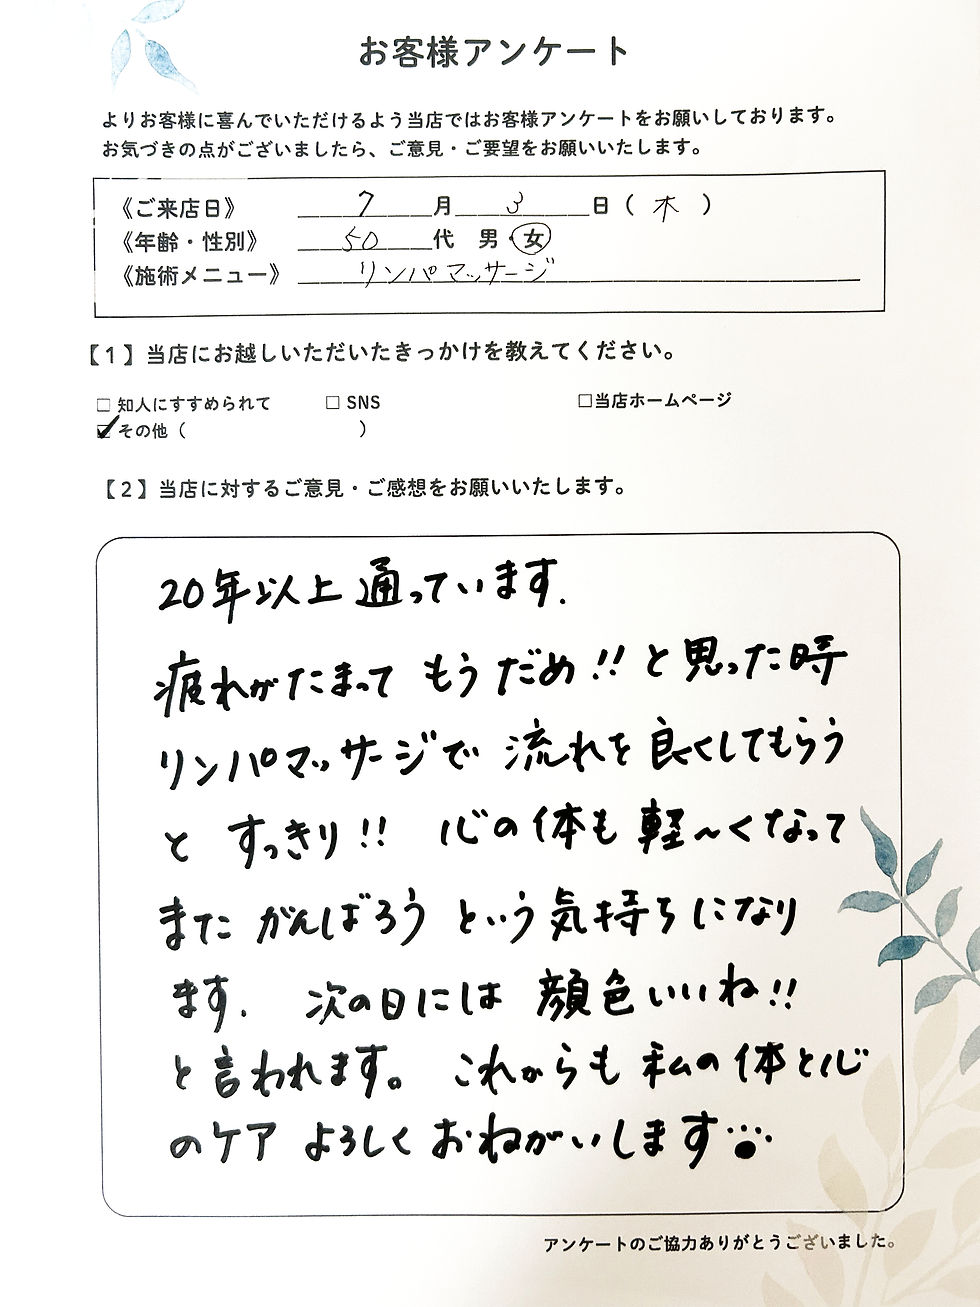 お客様アンケート
よりお客様に喜んでいただけるよう当店ではお客様アンケートをお願いしております。
お気づきの点がございましたら、ご意見・ご要望をお願いいたします。
《ご来店日》 7月3日（木）
《年齢・性別》 50代 男・女
《施術メニュー》 リンパマッサージ
【1】当店にお越しいただいたきっかけを教えてください。
□ 知人にすすめられて □ SNS □当店ホームページ
☑ その他（ ）
【2】当店に対するご意見・ご感想をお願いいたします。
20年以上通っています.
疲れがたまって もうだめ!! と思った時
リンパマッサージで 流れを良くしてもらう
と すっきり!! 心の体も軽〜くなって
また がんばろう という気持ちになり
ます. 次の日には 顔色いいね!!
と言われます。 これからも 私の体と心
のケア よろしく おねがいします
アンケートのご協力ありがとうございました。